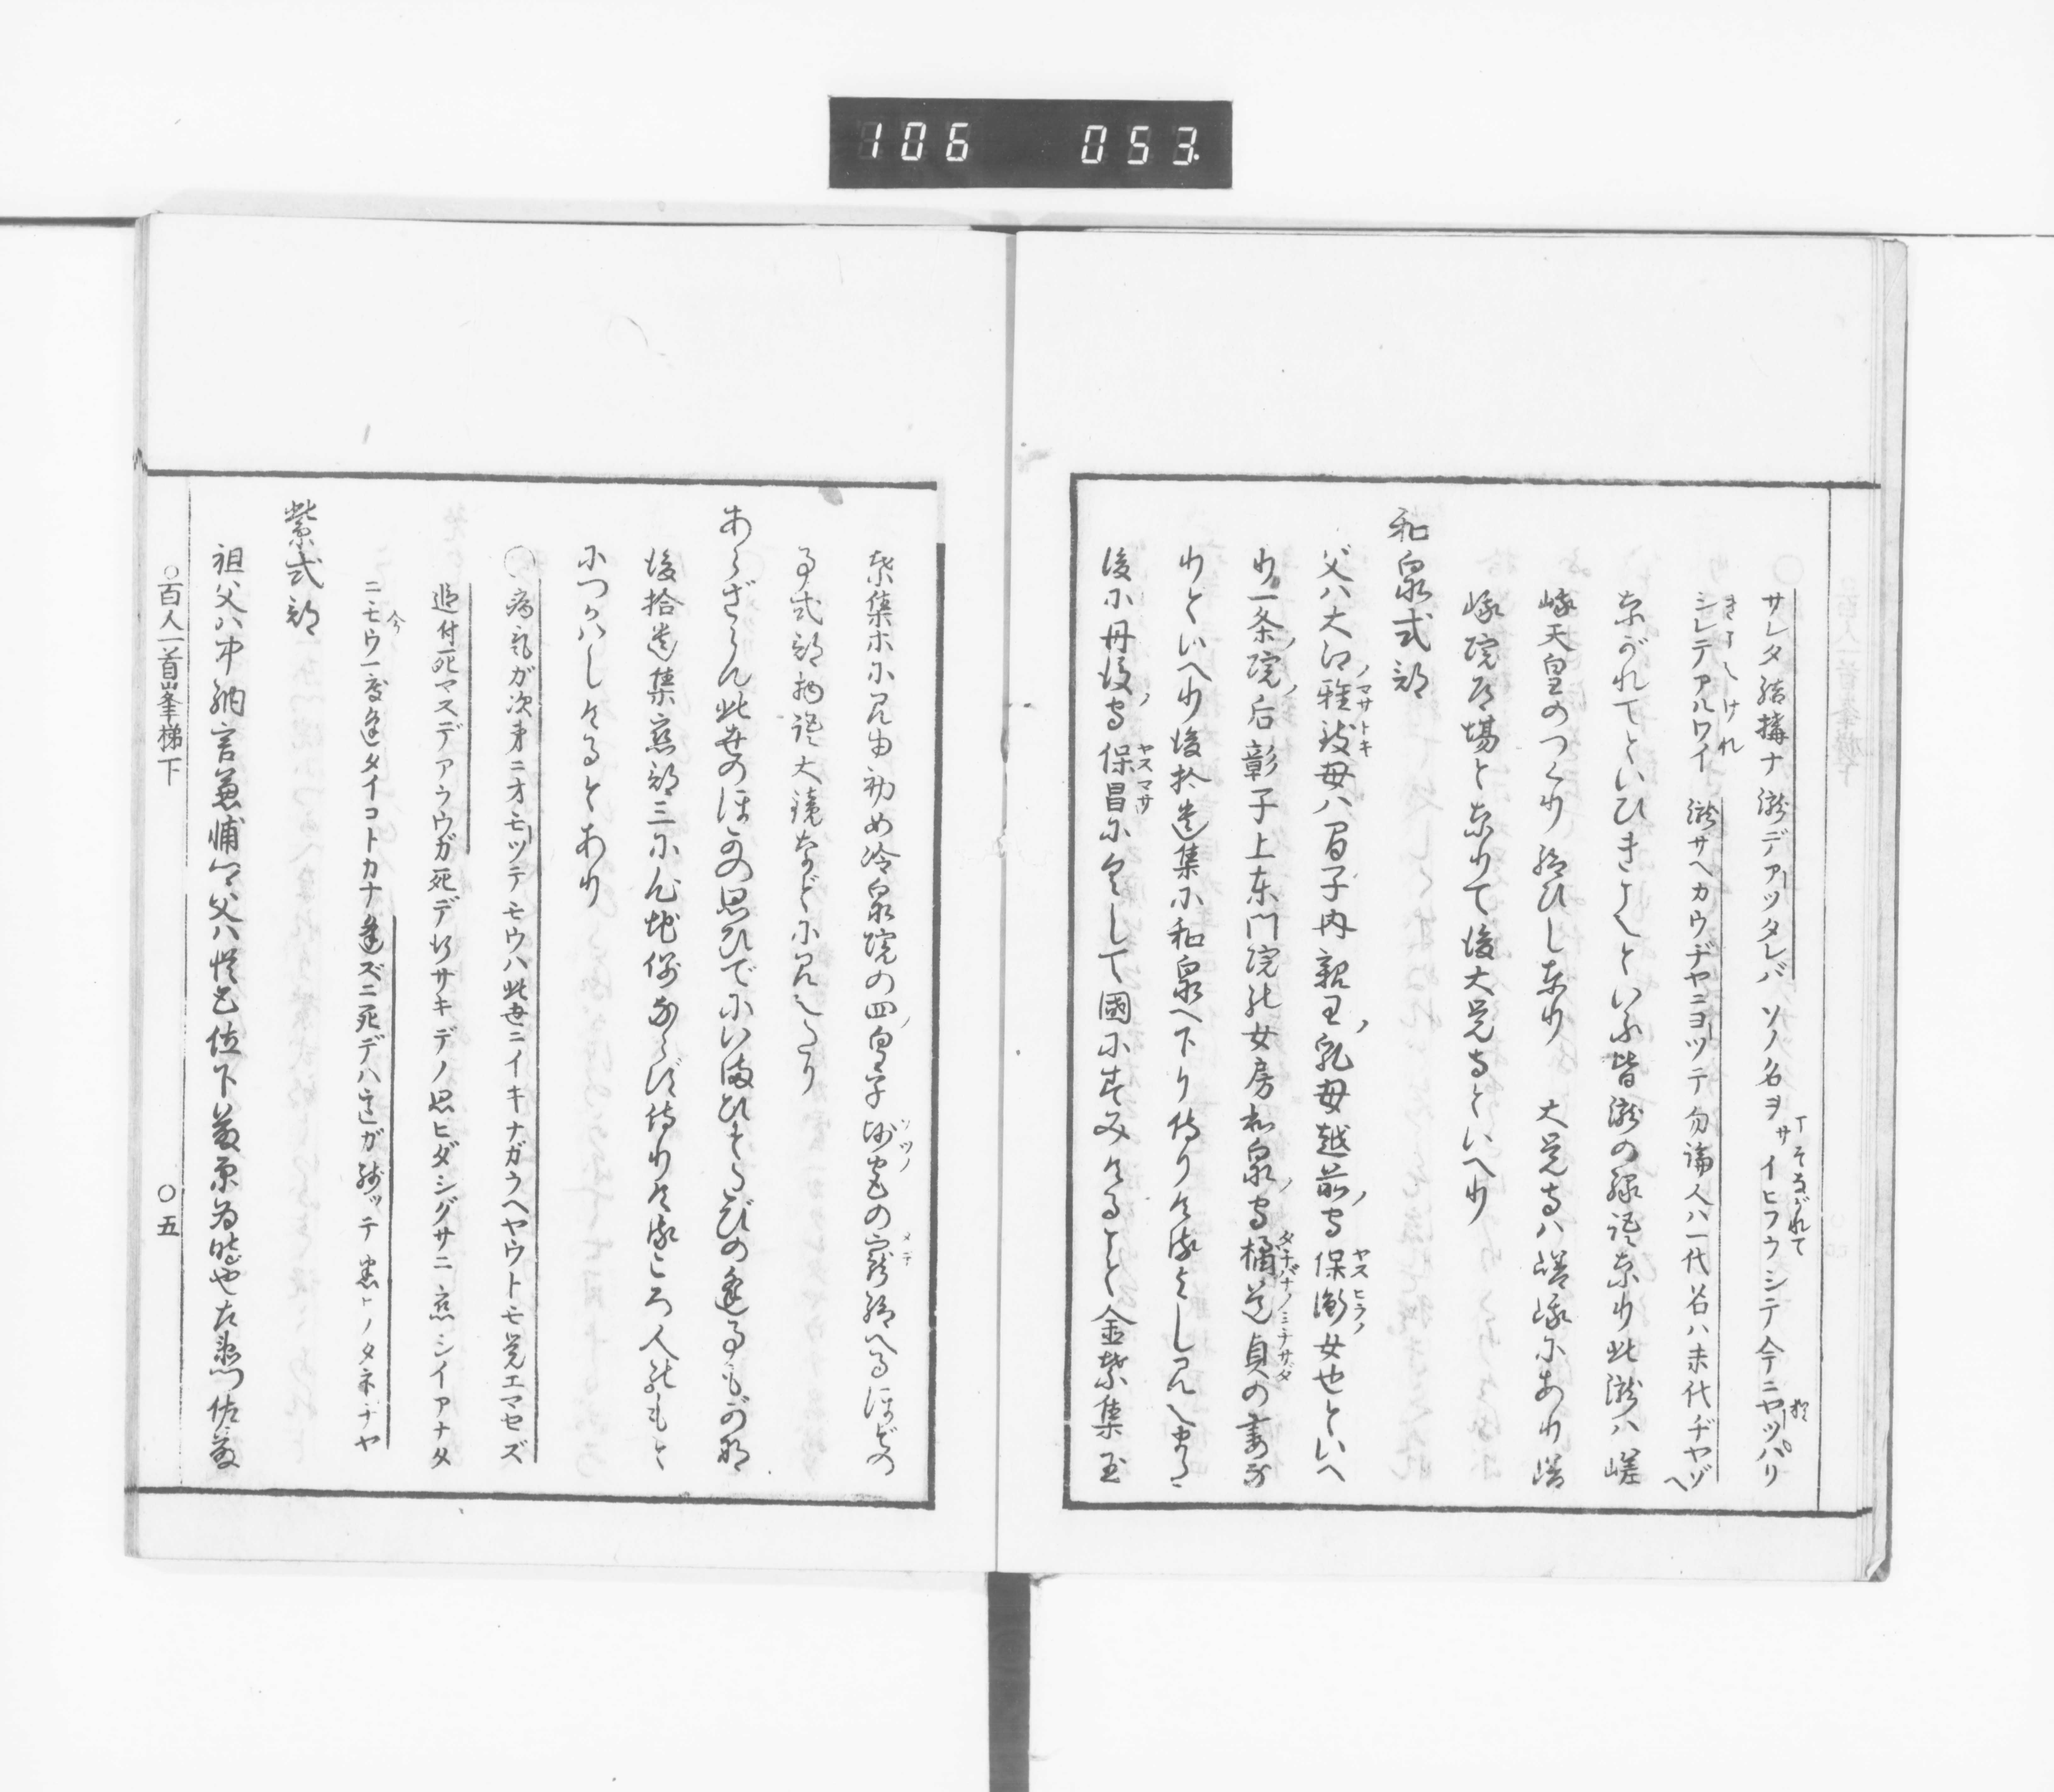 106 053
サレタ結構ナ瀧デアツタレバソノ名ヲサイヒフウシテ今ニヤツパリ
シレテアルワイ 瀧サヘカウヂヤニヨツテ勿論人ハ一代名ハ末代ヂヤゾへ
ながれてといひきこえといふ皆瀧の縁語なり此瀧ハ嵯
峨天皇のつくり給ひしなり 大覚寺ハ嵯峨にあり嵯
峨院乃場となりて後大覚寺といへり
和泉式部
父ハ大江雅致母ハ昌子内親王乳母越前守保衡女也といへ
り一条院后彰子上東門院の女房和泉守橘道貞の妻な
りといへり後拾遺集に和泉へ下り侍りける
後に丹後守保昌に具して國にすみけること金葉集玉
葉集ホに見ゆ初め冷泉院の四皇子帥宮の寵給へるほどの
事式部物語大鏡などに見えたり
あらざらん此世のほかの思ひでにいまひとたびの逢事もがな
後拾遺集恋部三に心地例ならず侍りけるころ人のもと
につかハしけるとあり
○病気が次第ニオモツテモウハ此世ニイキナガラヘヤウトモ覚エマセズ
追付死マスデアラウガ死デ行サキデノ思ヒダシグサニ恋シイアナタ
ニモウ一度逢タイコトカナ逢ズニ死デハ心が残ッテ迷ヒノタネヂヤ
紫式部
祖父ハ中納言兼輔卿父ハ従五位下藤原為時也右衛門佐藤
○百人一首峯梯下 ○五